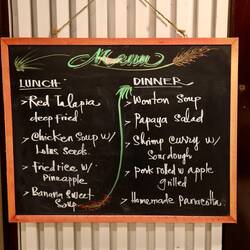 Menu
LUNCH
> Red Talapia
deep fried
> Chicken Soup w/
Lotus Seeds
> fried rice w/
Pineapple
> Banana Sweet
Soup
DINNER
> Wonton Soup
> Papaya Salad
> Shrimp Curry w/
Sourdough
> pork rolled w apple
grilled
> Homemade Panacotta